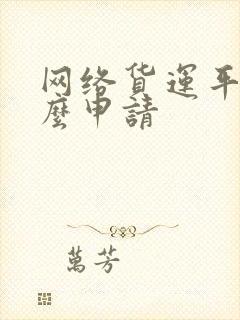 网络货運平
麼申請
萬芳